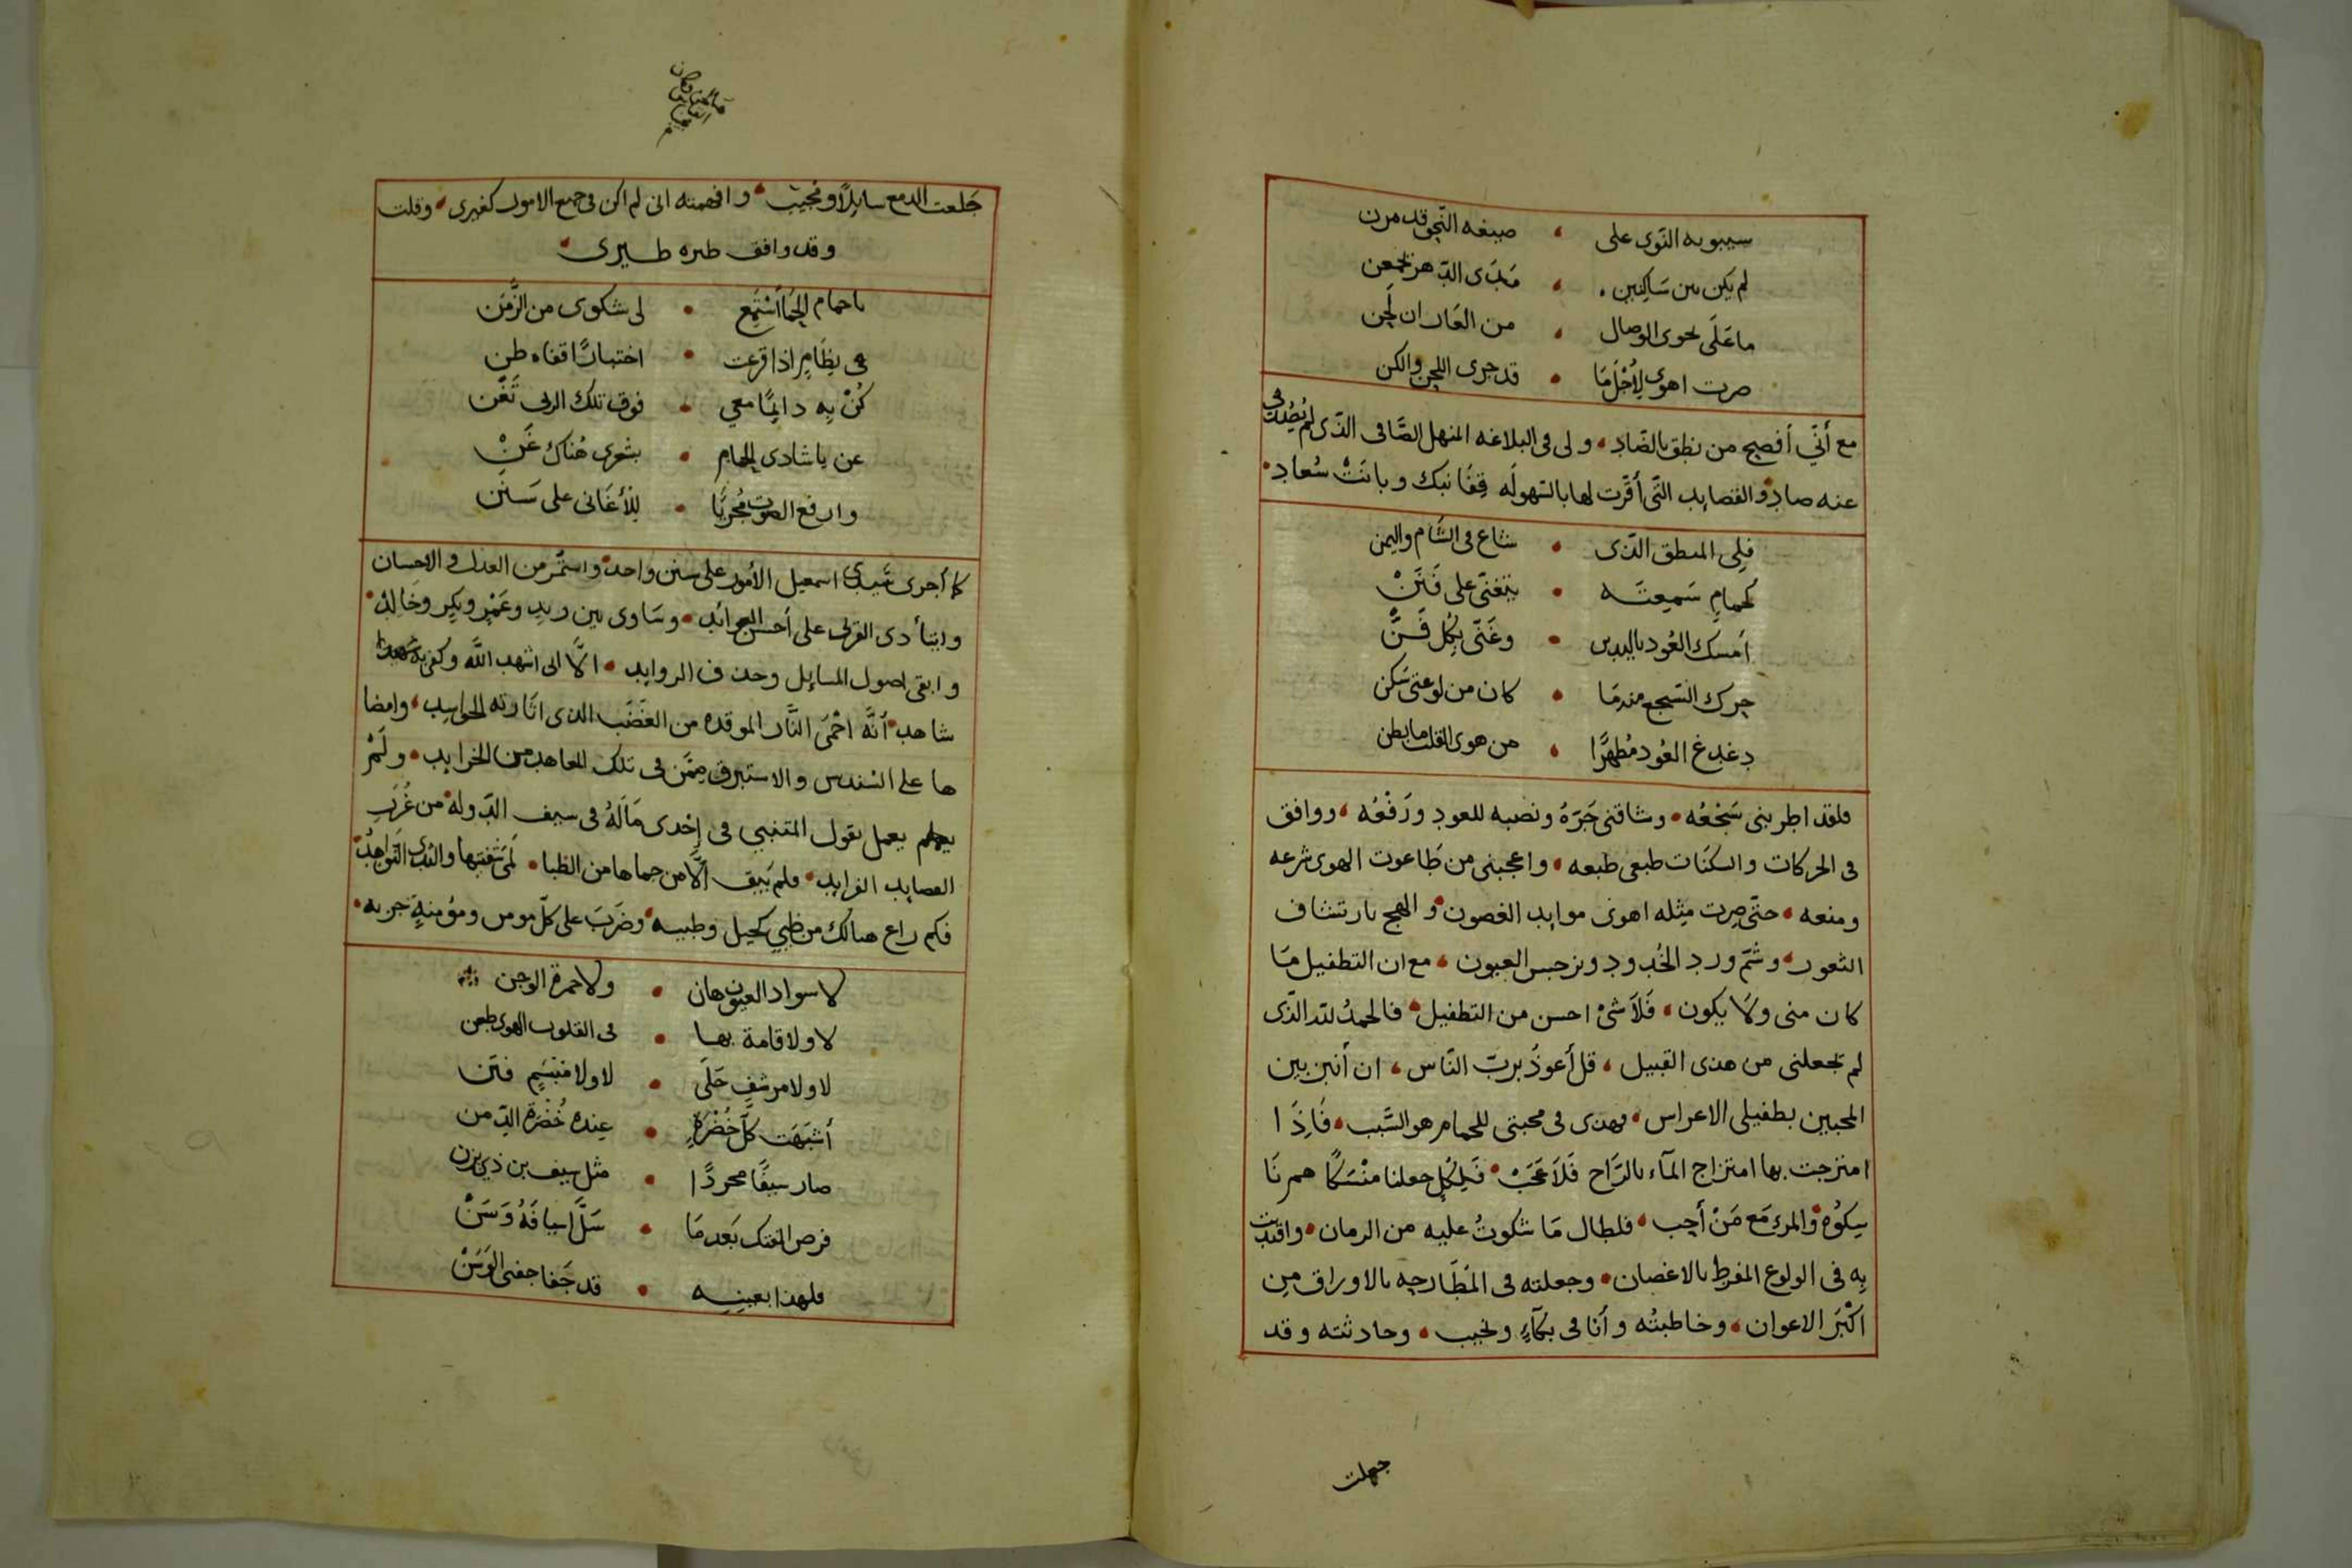 سيبويه النوى على • صيغه النجو قد مرن
لم يكن بين ساكنين • مدى الدهر تجمعن
ما على نحوى الوصال • من العار ان لحن
صرت اهوى لأجل ما • قد جرى اللحن والكن
مع أني أفصح من نطق بالضاد • ولى فى البلاغه المنهل الصافى الذى لم يصدف
عنه صاد • والقصايد التى أقرت لها بالسهوله قفا نبك وبانت سعاد •
فلى المنطق الذى • شاع فى الشام واليمن
كحمام سمعته • يتغنى على فنن
أمسك العود باليدين • وغنى بكل فن
حرك السجع مندما • كان من لوعتى سكن
دغدغ العود مظهرا • من هوى القلب ما بطن
فلقد اطربنى سجعه • وشاقنى جره ونصبه للعود ورفعه • ووافق
فى الحركات والسكنات طبعى طبعه • واعجبنى من طاعوت الهوى شرعه
ومنعه • حتى صرت مثله اهوى موايد الغصون • والهج بارتشاف
الثغور • وشم ورد الخدود ونرجس العيون • مع ان التطفيل ما
كان منى ولا يكون • فلا شئ احسن من التطفيل • فالحمد لله الذى
لم تجعلنى من هذى القبيل • قل أعوذ برب الناس • ان أنبز بين
المحبين بطفيلى الاعراس • فهذى فى محبتى للحمام هو السبب • فاذا
امتزجت بها امتزاج الماء بالراح فلا عجب • فلكل جعلنا منسكا هم نا
سكوه • والمرء مع من أحب • فلطال ما شكوت عليه من الزمان • واقتديت
به فى الولوع المفرط بالاغصان • وجعلته فى المطارحه بالاوراق من
اكبر الاعوان • وخاطبته وأنا فى بكاء ونحيب • وحادثته وقد
جعلت
جعلت الدمع سايلا ومجيب • وافهمته انى لم اكن فى جميع الامور كغيرى • وقلت
وقد وافق طيره طيرى •
يا حمام الحما أستمع • لى شكوى من الزمن
فى نظام اذا قرعت • اختبارا قفاه طن
كن به دايما معي • فوق تلك الربى تغن
عن يا شادى الحمام • بشعرى هناك غن
وارفع الصوت مجريا • للأغانى على سنن
كما أجرى سيدى اسمعيل الأمور على سنن واحد • واستمر من العدل والاحسان
وايتأ ذى القربى على أحسن العوائد • وساوى بين زيد وعمر وبكر وخالد •
وابقى اصول المسايل وحذف الزوايد • الا انى اشهد الله وكفى به شهيدا
شاهد • أنه احمى النار الموقده من الغضب الذى اثارته الحواسد • وامضا
ها على السندس والاستبرق ممن فى تلك المعاهد من الخرايد • ولم
يعمل بقول المتنبي فى إحدى ماله فى سيف الدوله • من غرر
القصايد الفرايد • فلم يبق إلا من حماها من الظبا • لمى شفتيها والثدى النواهد •
فكم راع هنالك من ظبي كحيل وظبيه • وضرب على كل مومن ومؤمنة جزيه •
لا سواد العيون هان • ولا حمرة الوجن
لا ولا قامة بها • فى القلوب الهوى طعن
لا ولا مرشف حلى • لا ولا مبتسم فتن
أشبهت كل خضرة • عنده خضرة الدمن
صار سيفا مجردا • مثل سيف بن ذي يزن
فرض الفتك بعد ما • سل اسيافه وسن
فلهذا بعينه • قد جفا جفنى الوسن